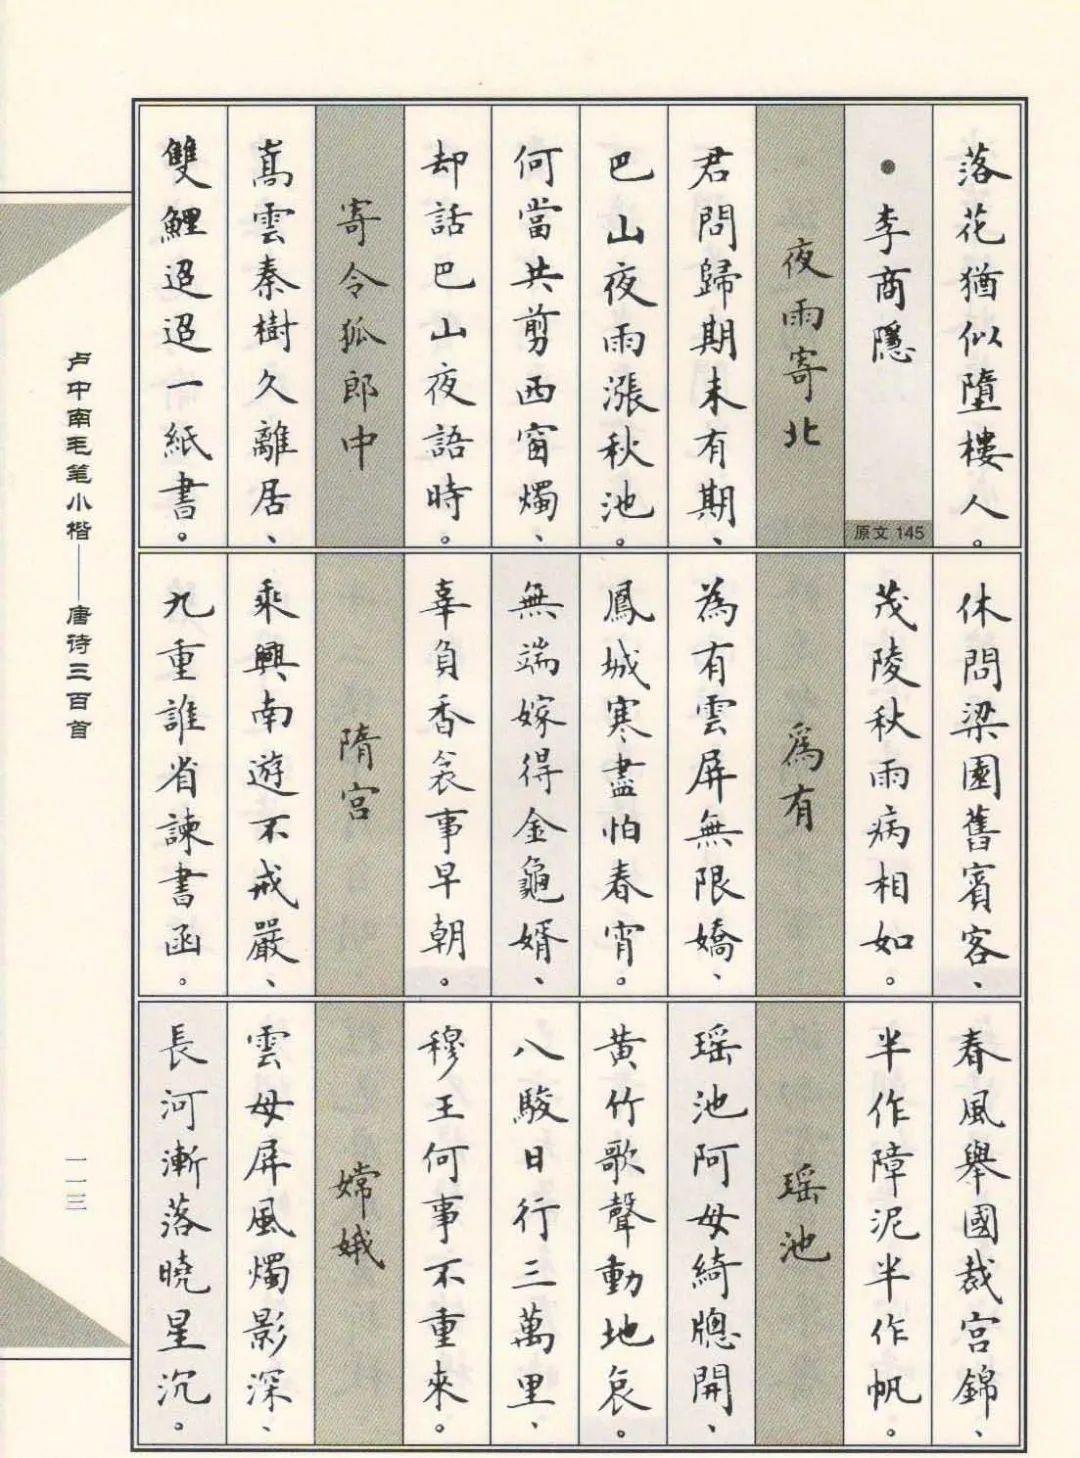 落花猶似墮樓人。
● 李商隱
原文 145
夜雨寄北
君問歸期未有期、
巴山夜雨漲秋池。
何當共剪西窗燭、
却話巴山夜語時。
寄令狐郎中
嵩雲秦樹久離居、
雙鯉迢迢一紙書。
休問梁園舊賓客、
茂陵秋雨病相如。
爲有
為有雲屏無限嬌、
鳳城寒盡怕春宵。
無端嫁得金龜婿、
辜負香衾事早朝。
隋宮
乘興南遊不戒嚴、
九重誰省諫書函。
春風舉國裁宮錦、
半作障泥半作帆。
瑶池
瑶池阿母綺牕開、
黄竹歌聲動地哀。
八駿日行三萬里、
穆王何事不重來。
嫦娥
雲母屏風燭影深、
長河漸落曉星沉。
卢中南毛笔小楷——唐诗三百首
一一三